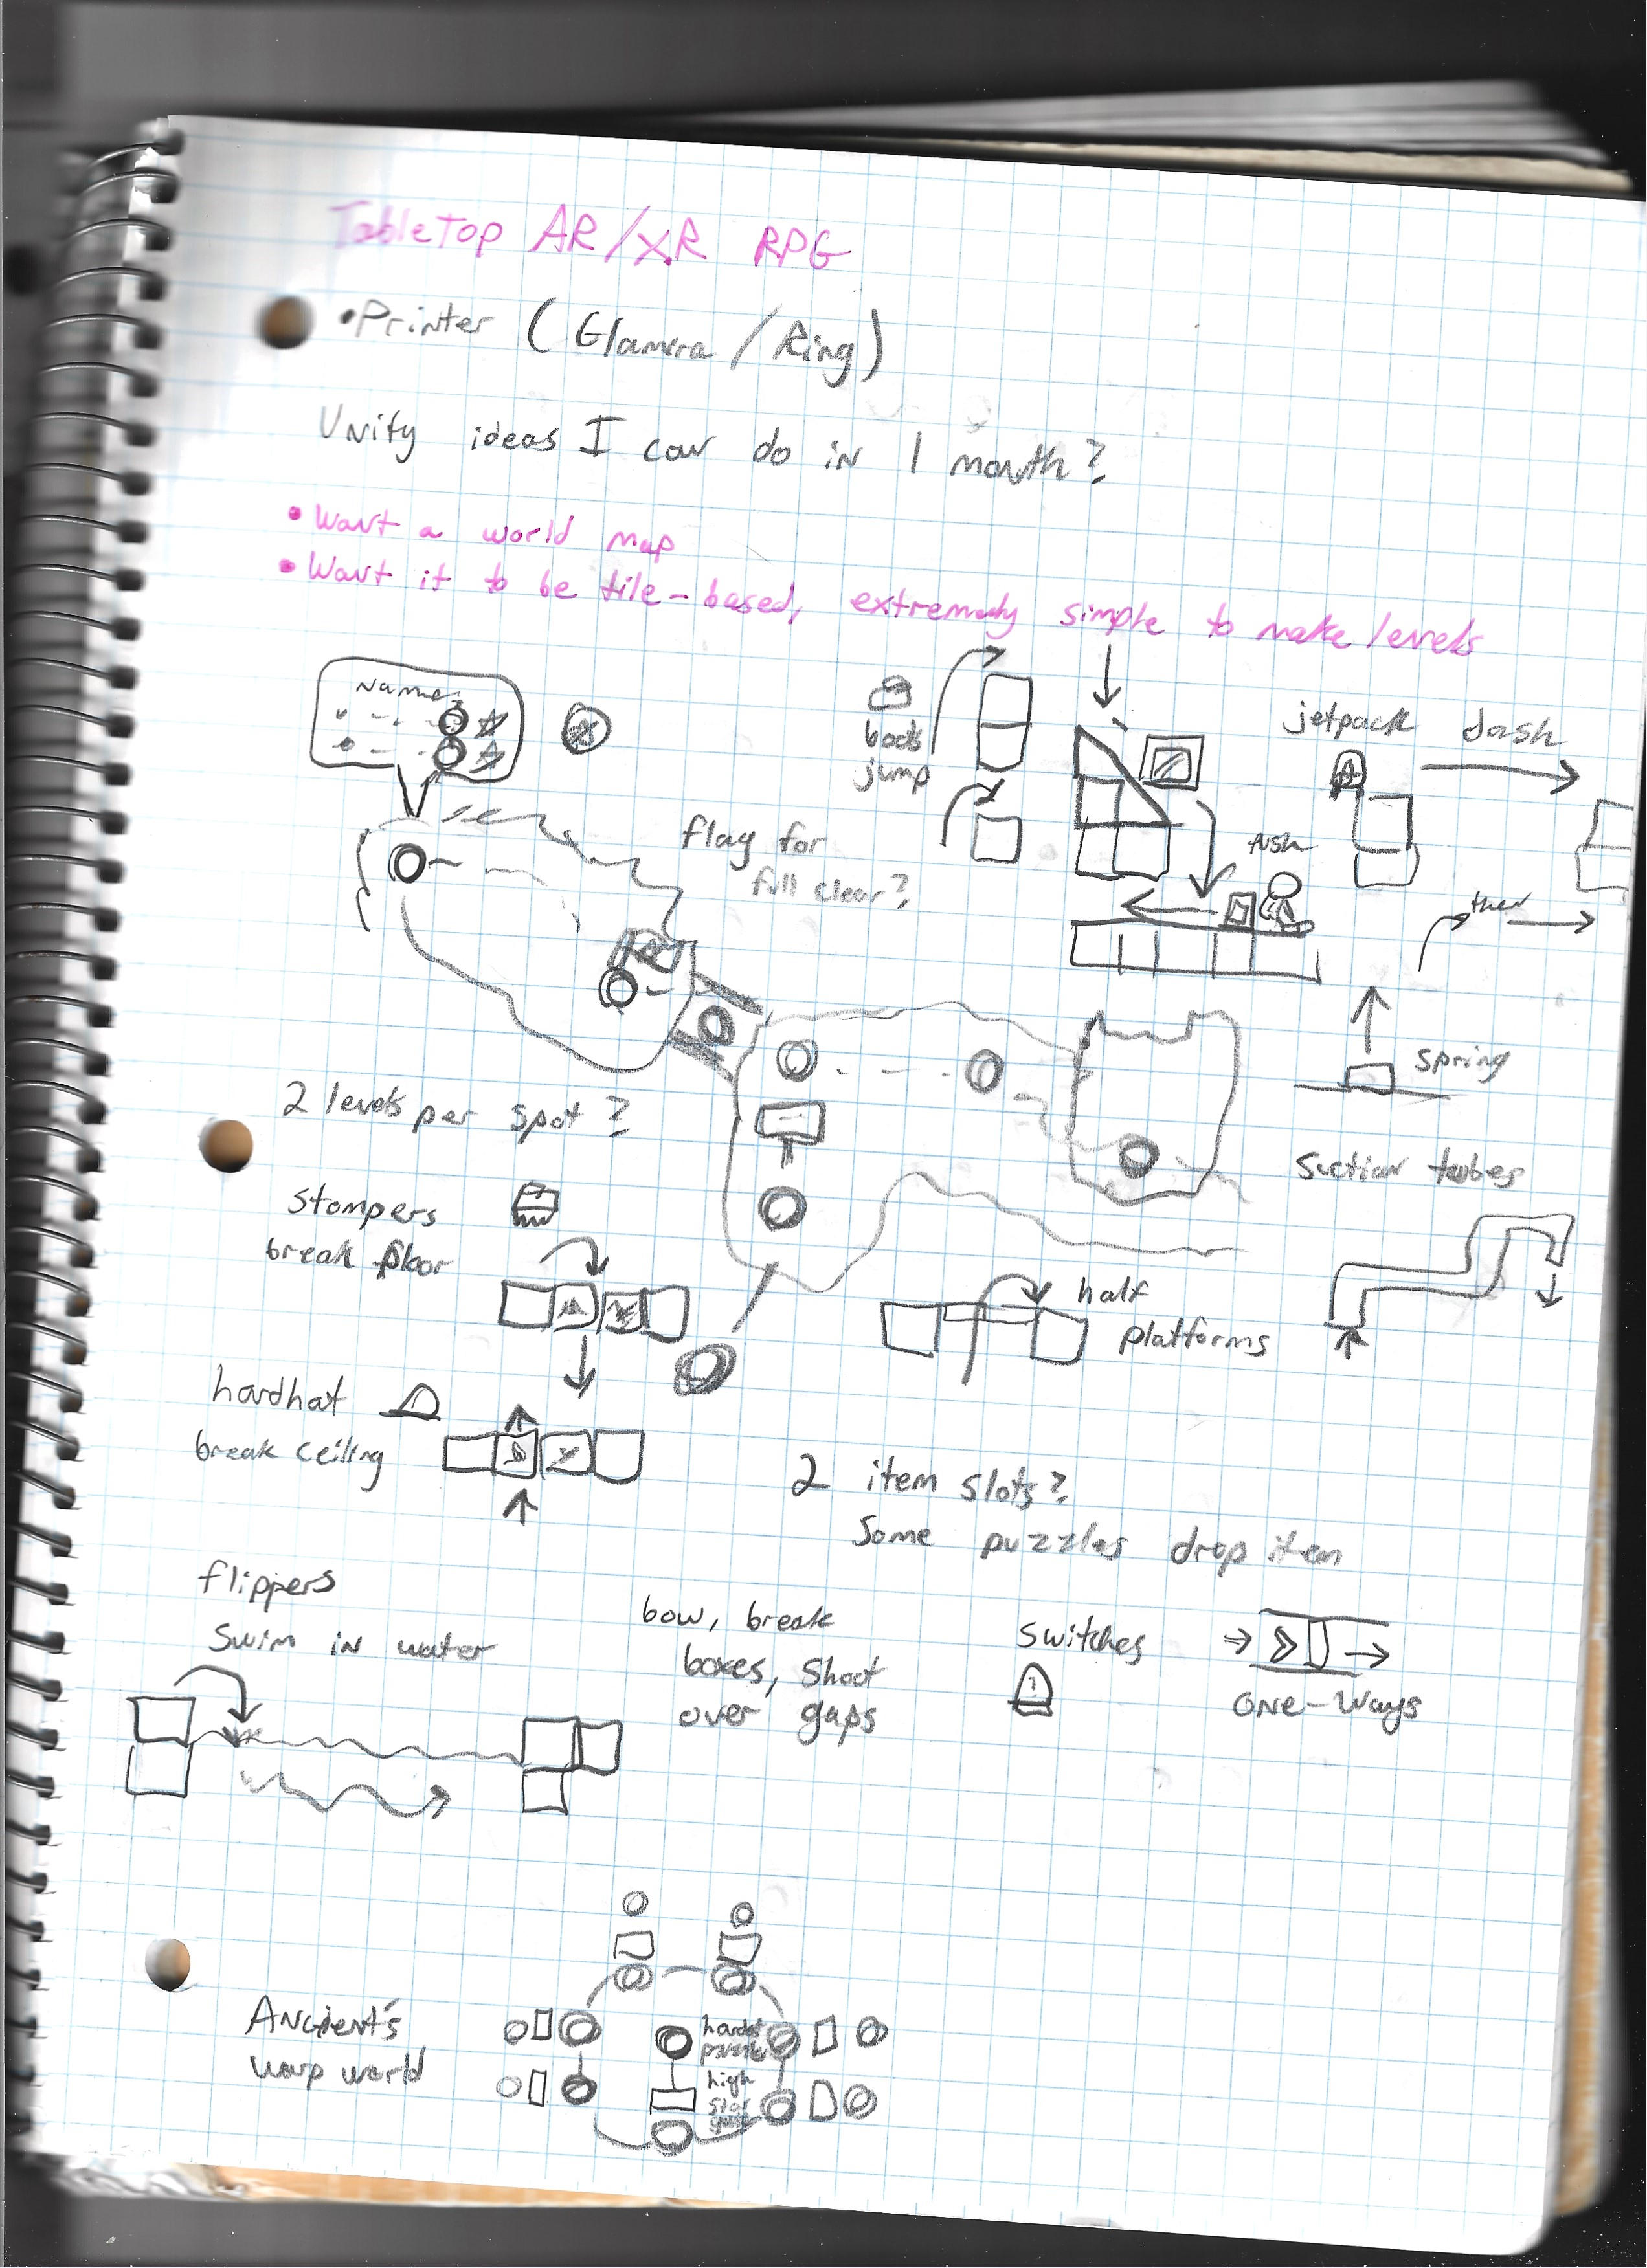 TableTop AR/XR RPG
• Printer (Glamera / Ring)
Unity ideas I can do in 1 month?
• Want a world map
• Want it to be tile-based, extremely simple to make levels
Name
boots
jump
jetpack dash
push
flag for
full clear?
then
spring
2 levels per spot?
suction tubes
stompers
break floor
half
platforms
hardhat
break ceiling
2 item slots?
Some puzzles drop item
flippers
swim in water
bow, break
boxes, shoot
over gaps
switches
one-ways
Ancient's
warp world
hardest
high
star